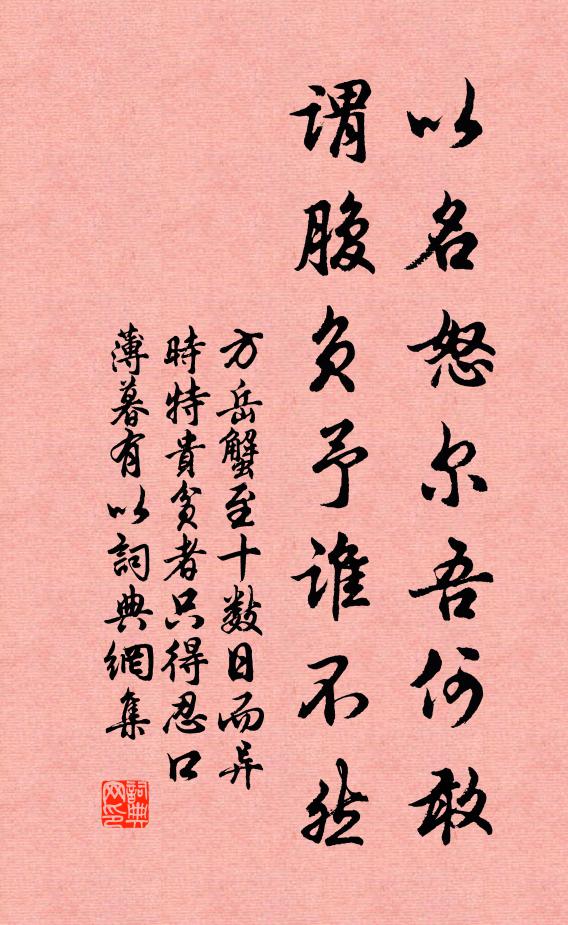 以名怒尔吾何敢
謂腹負予誰不然
方岳蟹至十数日而异
時特貴貧者只得忍口
薄暮有以詞典網集
詞典网印